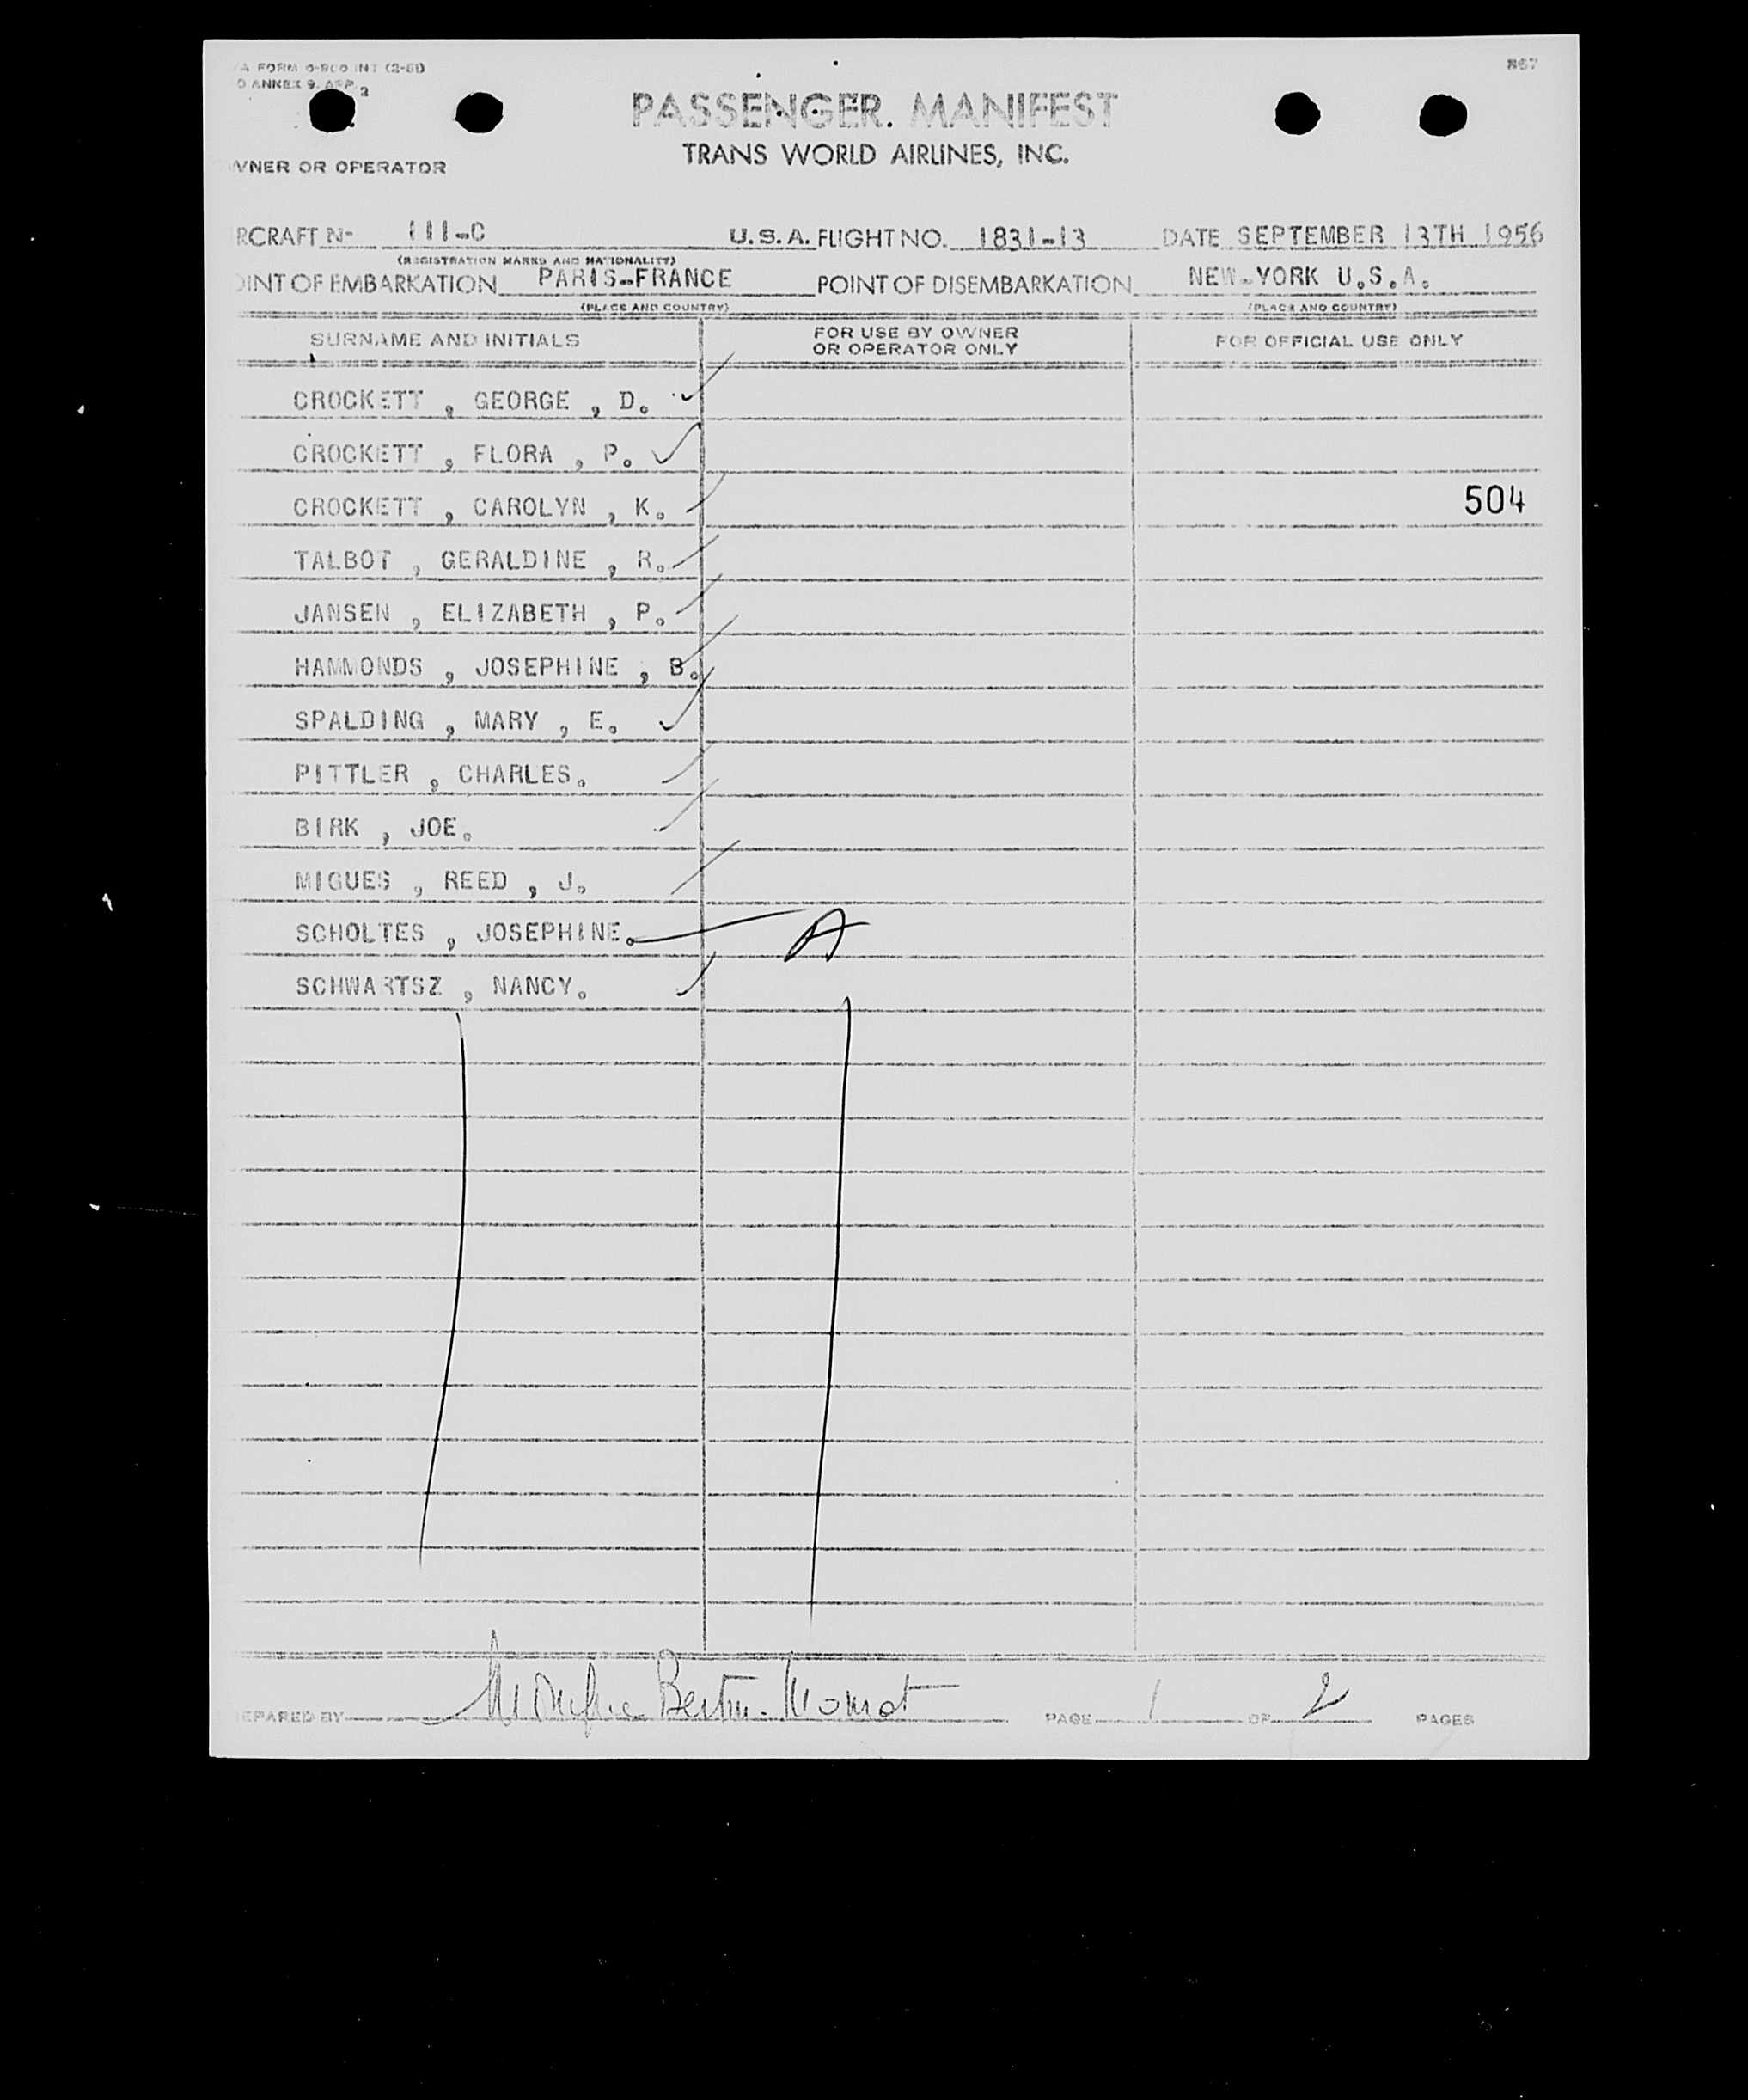 A FORM O-800 INT (2-51)
O ANNEX 9. APP. 3
867
PASSENGER MANIFEST
TRANS WORLD AIRLINES, INC.
WNER OR OPERATOR
RCRAFT N- 111-C U.S.A. FLIGHT NO. 1831-13 DATE SEPTEMBER 13TH 1956
(REGISTRATION MARKS AND NATIONALITY)
OINT OF EMBARKATION PARIS-FRANCE POINT OF DISEMBARKATION NEW-YORK U.S.A.
(PLACE AND COUNTRY) (PLACE AND COUNTRY)
SURNAME AND INITIALS FOR USE BY OWNER OR OPERATOR ONLY FOR OFFICIAL USE ONLY
CROCKETT , GEORGE , D.
CROCKETT , FLORA , P.
CROCKETT , CAROLYN , K. 504
TALBOT , GERALDINE , R.
JANSEN , ELIZABETH , P.
HAMMONDS , JOSEPHINE , B.
SPALDING , MARY , E.
PITTLER , CHARLES.
BIRK , JOE.
MIGUES , REED , J.
SCHOLTES , JOSEPHINE. A
SCHWARTSZ , NANCY.
EPARED BY PAGE 1 OF 2 PAGES